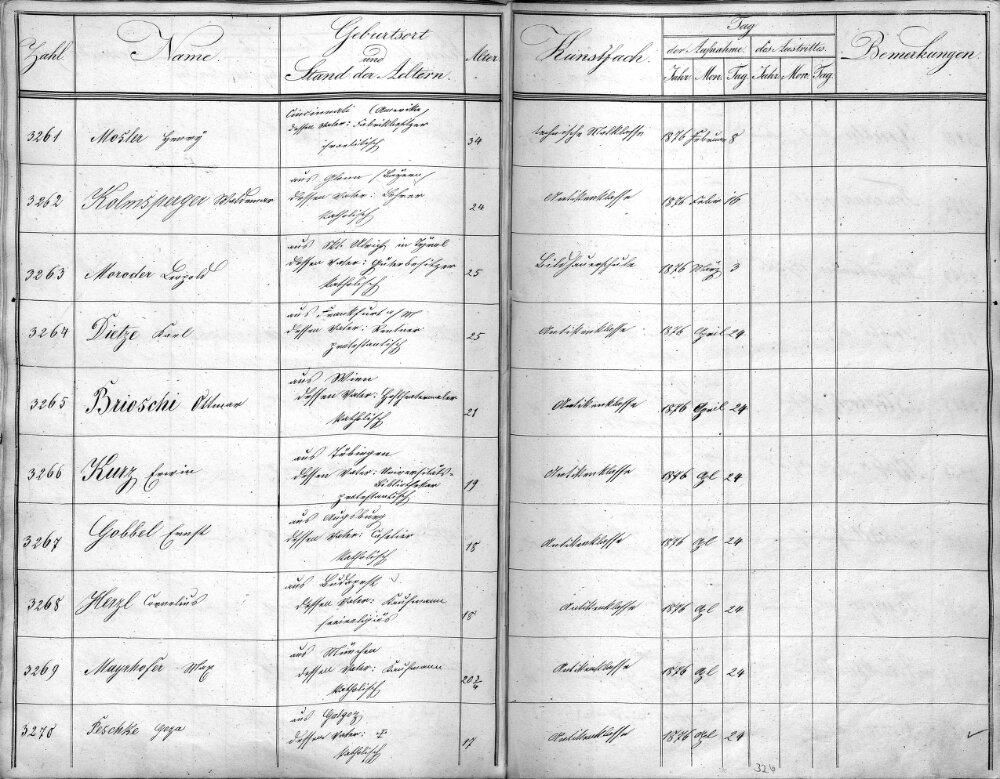 Zahl Name. Geburtsort und Stand der Aeltern. Alter. Kunstfach. Tag der Aufnahme. des Austrittes. Bemerkungen.
Jahr Mon. Tag. Jahr. Mon. Tag.
3261 Mosler Henry Cincinnati (Amerika, 34 technische Malklasse 1876 Februar 8
dessen Vater: Fabrikbesitzer
israelitisch
3262 Kolmsperger Waldemar aus (Bayern) 24 Antikenklasse 1876 Feber 16
dessen Vater: Lehrer
katholisch
3263 Moroder Leopold aus Skt. Ulrich in Tyrol 25 Bildhauerschule 1876 März 3
dessen Vater: Güterbesitzer
katholisch
3264 Dietze Karl aus Frankfurt a/M 25 Antikenklasse 1876 April 24
dessen Vater: Rentier
protestantisch
3265 Brioschi Ottmar aus Wien 21 Antikenklasse 1876 April 24
dessen Vater: Hoftheatermaler
katholisch
3266 Kurz Erwin aus Tübingen 19 Antikenklasse 1876 Apl 24
dessen Vater: Universitäts-
Bibliothekar
protestantisch
3267 Gobbel Ernst aus Augsburg 18 Antikenklasse 1876 Apl 24
dessen Vater: Cafetier
katholisch
3268 Herzl Cornelius aus Budapest 18 Antikenklasse 1876 Apl 24
dessen Vater: Kaufmann
freireligiös
3269 Mayrhofer Max aus München 20 3/4 Antikenklasse 1876 Apl 24
dessen Vater: Kaufmann
katholisch
3270 Peschke Geza aus Galgocz 17 Antikenklasse 1876 Apl 24
dessen Vater: †
katholisch
326